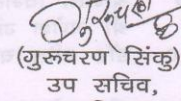 (गुरूचरण सिंकु)
उप सचिव,